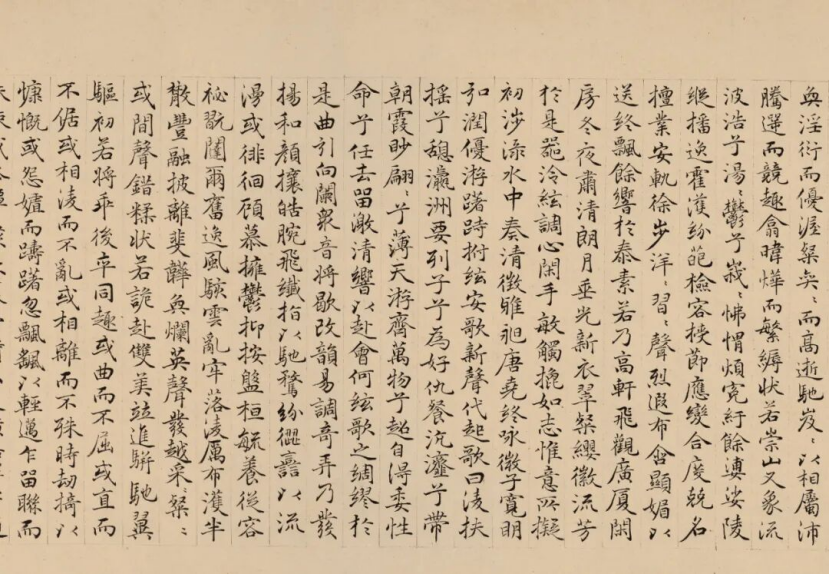 奐淫衍而優渥粲奕〻而高逝馳岌〻以相屬沛
騰遌而競趣翕暐燁而繁縟狀若崇山又象流
波浩兮湯〻鬱兮峩〻怫㥜煩冤紆餘婆娑陵
縱播逸霍濩紛葩檢容授節應變合度兢名
擅業安軌徐步洋〻習〻聲烈遐布含顯媚以
送終飄餘響於泰素若乃高軒飛觀廣厦閑
房冬夜肅清朗月垂光新衣翠粲纓徽流芳
於是器泠絃調心閑手敏觸㧙如志惟意所擬
初涉渌水中奏清徵雅昶唐堯終咏微子寬明
弘潤優游躇跱拊絃安歌新聲代起歌曰凌扶
搖兮憩瀛洲要列子兮為好仇餐沆瀣兮帶
朝霞眇翩〻兮薄天游齊萬物兮超自得委性
命兮任去留激清響以赴會何絃歌之綢繆於
是曲引向闌衆音將歇改韻易調奇弄乃發
揚和顏攘皓腕飛纖指以馳騖紛㒊譶以流
漫或徘徊顧慕擁鬱抑按盤桓毓養從容
祕翫闥爾奮逸風駭雲亂牢落凌厲布濩半
散豐融披離斐韡奐爛英聲發越采粲〻
或間聲錯糅狀若詭赴雙美竝進駢馳翼
驅初若將乖後卒同趣或曲而不屈或直而
不倨或相凌而不亂或相離而不殊時劫掎以
慷慨或怨㜘而躊躇忽飄颻以輕邁乍留聯而